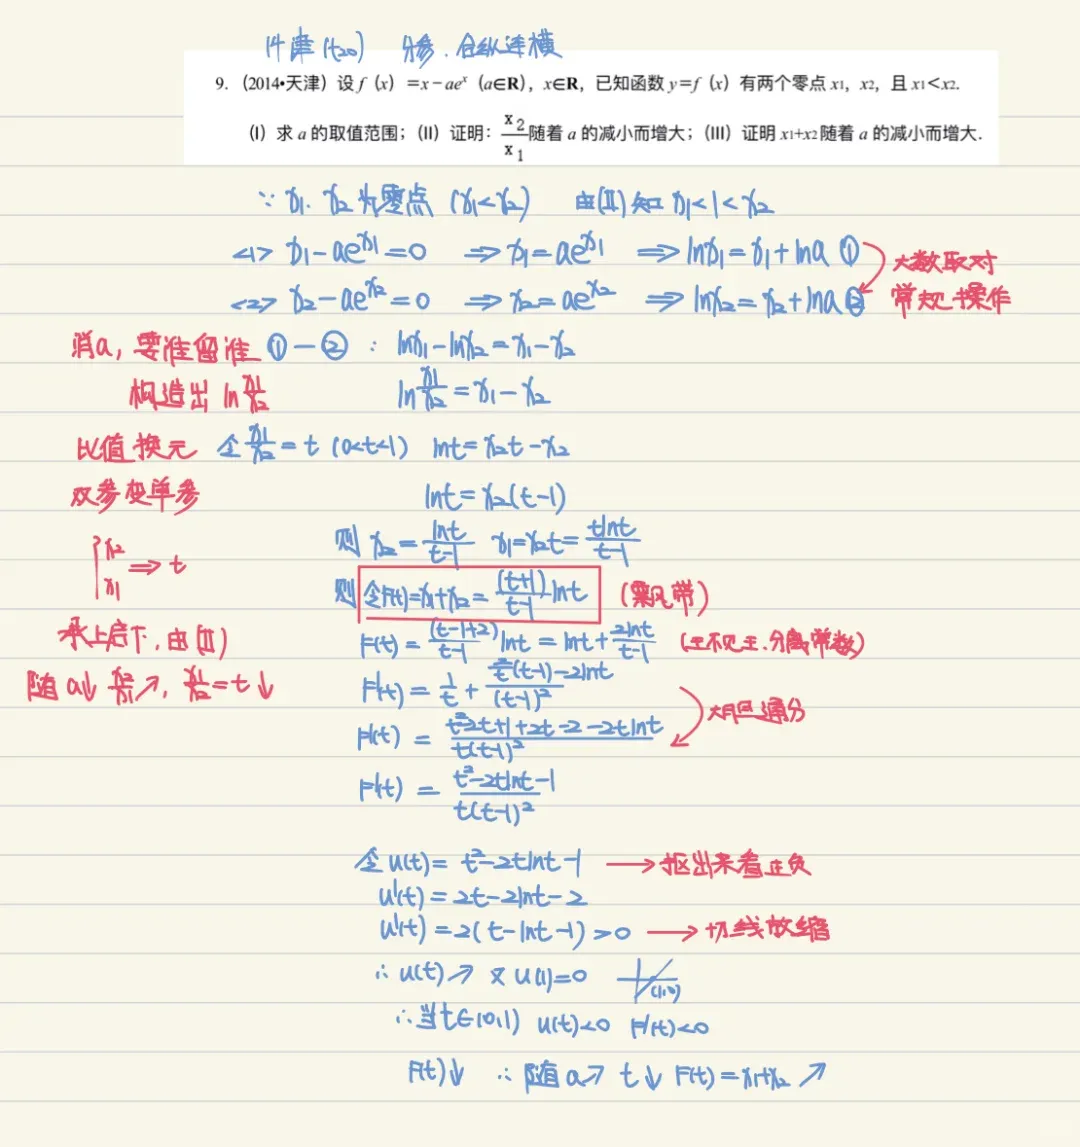 津 (t20) 分参.合纵连横
9. (2014•天津) 设 f (x) =x−ae^x (a∈R), x∈R, 已知函数 y=f (x) 有两个零点 x1, x2, 且 x1<x2.
(I) 求 a 的取值范围; (II) 证明: x2/x1 随着 a 的减小而增大; (III) 证明 x1+x2 随着 a 的减小而增大.
∵ x1. x2 为零点 (x1<x2) 由(II)知 x1<1<x2
<1> x1−ae^x1=0 ⇒ x1=ae^x1 ⇒ lnx1=x1+lna ①
大数取对
<2> x2−ae^x2=0 ⇒ x2=ae^x2 ⇒ lnx2=x2+lna ②
常规操作
消a, 要谁留谁 ①−②: lnx1−lnx2=x1−x2
构造出 ln x1/x2 ln x1/x2 = x1−x2
比值换元 令 x1/x2 = t (0<t<1) lnt=x2t−x2
双参变单参 lnt=x2(t−1)
则 x2= lnt/t−1 x1=x2t= tlnt/t−1
{x2 x1 ⇒ t
则 令F(t)=x1+x2= (t+1)/t−1 lnt (飘带)
承上启下, 由(II) F(t)= (t−1+2)/t−1 lnt = lnt+ 2lnt/t−1 (王不见王.分离常数)
随 a↓ x2/x1↗, x1/x2=t↓ F'(t)= 1/t + 2/t(t−1)−2lnt/(t−1)²
大胆通分
F'(t) = t²−2t+1+2t−2−2tlnt/t(t−1)²
F'(t) = t²−2tlnt−1/t(t−1)²
令u(t)= t²−2tlnt−1 → 抠出来看正负
u'(t)=2t−2lnt−2
u'(t)=2(t−lnt−1)>0 → 切线放缩
∴ u(t)↗ 又 u(1)=0 (1,0)
∴ 当t∈(0,1) u(t)<0 F'(t)<0
F(t)↓ ∴ 随a↗ t↓ F(t)=x1+x2 ↗